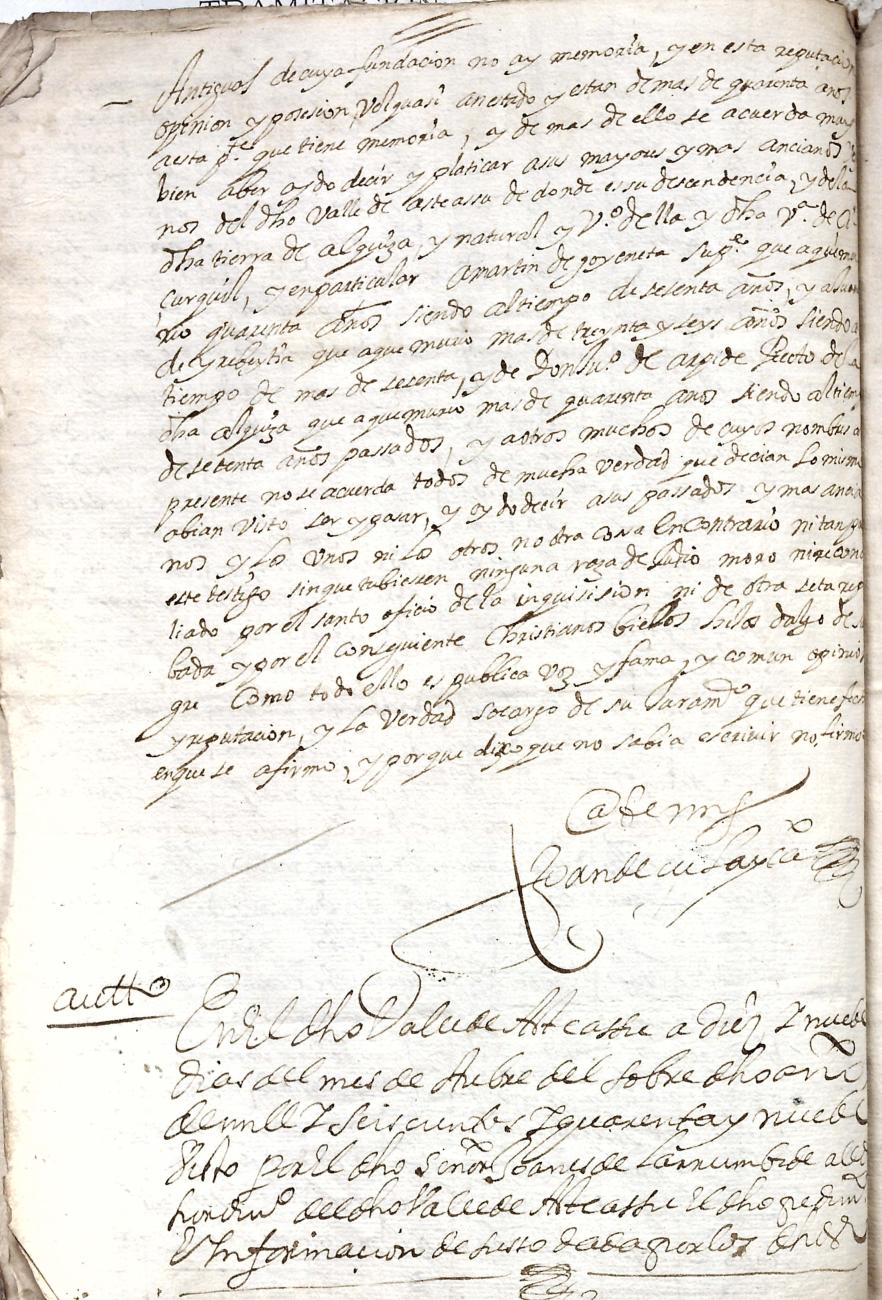 TRAMITACION
Antiguos de cuya fundacion no ay memoria, y en esta reputacion
opinion y posesion, vel quasi an estado y estan de mas de quarenta años
a esta p.te que tiene memoria, y de mas de ello se acuerda muy
bien aber oydo decir y platicar a sus mayores y mas ancianos
nos del dho valle de asteassu de donde es su descendencia, y de la
dha tierra de alquiza, y natural y v.o della y dha v.a de
curquil, y en particular a martin de goyeneta que a que
rio quarenta años siendo al tiempo de sesenta años, y a
de que a que murio mas de treynta y seys años siendo a
tiempo de mas de sesenta, y de Don Ju.o de arpide Retor de la
dha alquiza que a que murio mas de quarenta años siendo al tiem
de setenta años passados, y a otros muchos de cuyos nombres a
presente no se acuerda todos de mucha verdad que decian lo mism
abian visto ser y pasar, y oydo decir a sus passados y mas ancia
nos y los unos ni los otros no otra cossa En contrario ni tan po
este testigo sin que tubiessen ninguna raza de Judio moro ni recon
liado por el santo oficio de la inquisission ni de otra seta rep
bada y por el consiguiente Christianos biejos hijos dalgo de sa
gre Como todo ello es publica voz y fama, y comun opinio
y reputacion, y la verdad so cargo de su Juram.to que tiene fec
en que se afirmo, y porque dixo que no sabia escrivir no firmo
Ante mi
Joan de
autto
En El dho Valle de Asteassu a Diez I nuebe
dias del mes de otubre del sobre dho año
de mill I seiscientos I quarenta y nuebe
Visto por El dho señor Joanes de Larrumbide alld
hordin.o del dho Valle de Asteassu El dho pedim.to
E Informacion de susto dada por los dhos